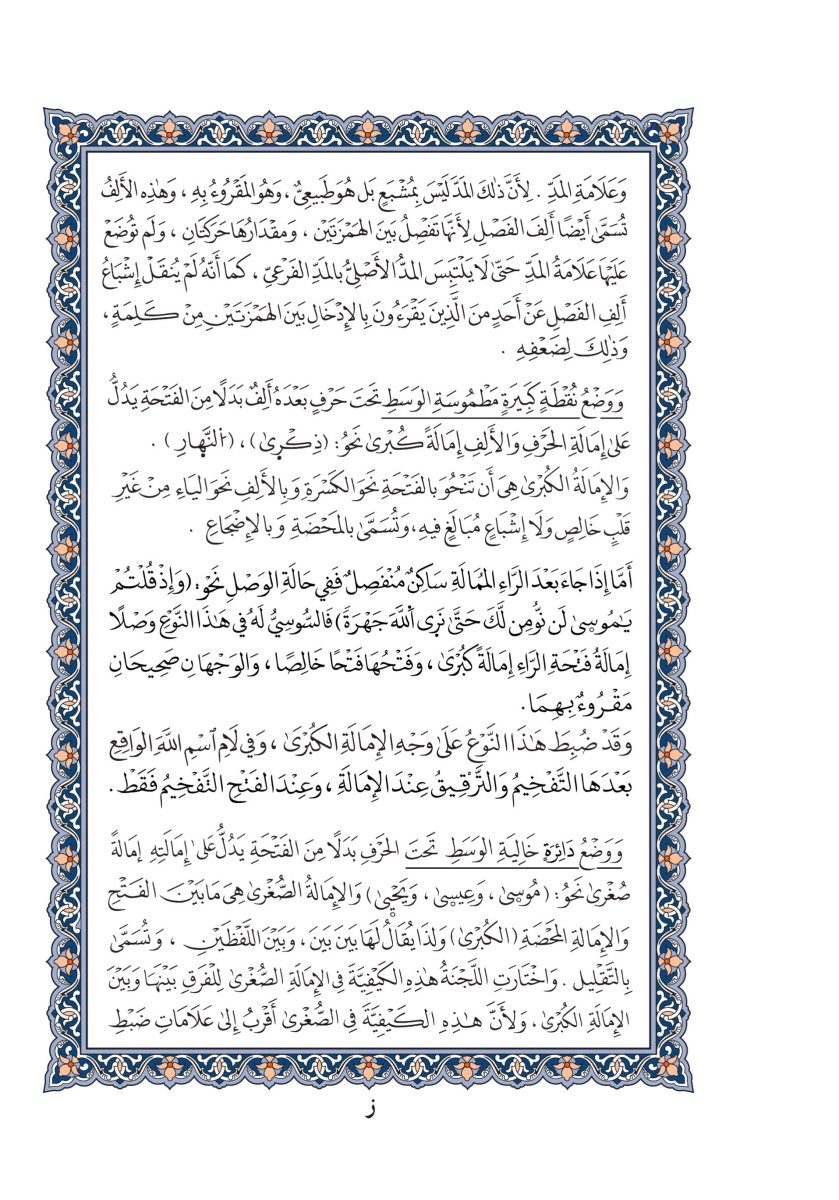 وَعَلَامَةِ المَدِّ . لِأَنَّ ذَٰلِكَ المَدَّ لَيْسَ بِمُشْبَعٍ بَل هُوَ طَبِيعِيٌّ ، وَهُوَ المَقْرُوءُ بِهِ ، وَهَٰذِهِ الأَلِفُ
تُسَمَّىٰ أَيْضًا أَلِفَ الفَصْلِ لِأَنَّهَا تَفْصِلُ بَيْنَ الهَمْزَتَيْنِ ، وَمِقْدَارُهَا حَرَكَتَانِ ، وَلَم تُوضَعْ
عَلَيْهَا عَلَامَةُ المَدِّ حَتَّىٰ لَا يَلْتَبِسَ المَدُّ الأَصْلِيُّ بِالمَدِّ الفَرْعِيِّ ، كَمَا أَنَّهُ لَمْ يُنقَلْ إِشْبَاعُ
أَلِفِ الفَصْلِ عَنْ أَحَدٍ مِنَ الَّذِينَ يَقْرَءُونَ بِالإِدْخَالِ بَيْنَ الهَمْزَتَيْنِ مِنْ كَلِمَةٍ ،
وَذَٰلِكَ لِضَعْفِهِ .
وَوَضْعُ نُقْطَةٍ كَبِيرَةٍ مَطْمُوسَةِ الوَسَطِ تَحْتَ حَرْفٍ بَعْدَهُ أَلِفٌ بَدَلًا مِنَ الفَتْحَةِ يَدُلُّ
عَلَىٰ إِمَالَةِ الحَرْفِ وَالأَلِفِ إِمَالَةً كُبْرَىٰ نَحْوُ: (ذِكْرِىٰ) ، (ٱلنَّهَارِ) .
وَالإِمَالَةُ الكُبْرَىٰ هِىَ أَن تَنْحُوَ بِالفَتْحَةِ نَحْوَ الكَسْرَةِ وَبِالأَلِفِ نَحْوَ اليَاءِ مِنْ غَيْرِ
قَلْبٍ خَالِصٍ وَلَا إِشْبَاعٍ مُبَالَغٍ فِيهِ، وَتُسَمَّىٰ بِالمَحْضَةِ وَبِالإِضْجَاعِ .
أَمَّا إِذَا جَاءَ بَعْدَ الرَّاءِ المُمَالَةِ سَاكِنٌ مُنْفَصِلٌ فَفِي حَالَةِ الوَصْلِ نَحْوُ: (وَإِذْ قُلْتُمْ
يَٰمُوسِىٰ لَن نُّومِن لَّكَ حَتَّىٰ نَرِى ٱللَّهَ جَهْرَةً) فَالسُّوسِيُّ لَهُ فِي هَٰذَا النَّوْعِ وَصْلًا
إِمَالَةُ فَتْحَةِ الرَّاءِ إِمَالَةً كُبْرَىٰ ، وَفَتْحُهَا فَتْحًا خَالِصًا ، وَالوَجْهَانِ صَحِيحَانِ
مَقْرُوءٌ بِهِمَا .
وَقَدْ ضُبِطَ هَٰذَا النَّوْعُ عَلَىٰ وَجْهِ الإِمَالَةِ الكُبْرَىٰ ، وَفِي لَامِ ٱسْمِ اللَّهِ الوَاقِعِ
بَعْدَهَا التَّفْخِيمُ وَالتَّرْقِيقُ عِنْدَ الإِمَالَةِ ، وَعِنْدَ الفَتْحِ التَّفْخِيمُ فَقَطْ .
وَوَضْعُ دَائِرَةٍ خَالِيَةِ الوَسَطِ تَحْتَ الحَرْفِ بَدَلًا مِنَ الفَتْحَةِ يَدُلُّ عَلَىٰ إِمَالَتِهِ إِمَالَةً
صُغْرَىٰ نَحْوُ: (مُوسِىٰ ، وَعِيسِىٰ ، وَيَحْيِىٰ) وَالإِمَالَةُ الصُّغْرَىٰ هِىَ مَا بَيْنَ الفَتْحِ
وَالإِمَالَةِ المَحْضَةِ (الكُبْرَىٰ) وَلِذَا يُقَالُ لَهَا بَيْنَ بَيْنَ ، وَبَيْنَ اللَّفْظَيْنِ ، وَتُسَمَّىٰ
بِالتَّقْلِيلِ . وَاخْتَارَتِ اللَّجْنَةُ هَٰذِهِ الكَيْفِيَّةَ فِى الإِمَالَةِ الصُّغْرَىٰ لِلْفَرْقِ بَيْنَهَا وَبَيْنَ
الإِمَالَةِ الكُبْرَىٰ ، وَلِأَنَّ هَٰذِهِ الكَيْفِيَّةَ فِى الصُّغْرَىٰ أَقْرَبُ إِلَىٰ عَلَامَاتِ ضَبْطِ
ز